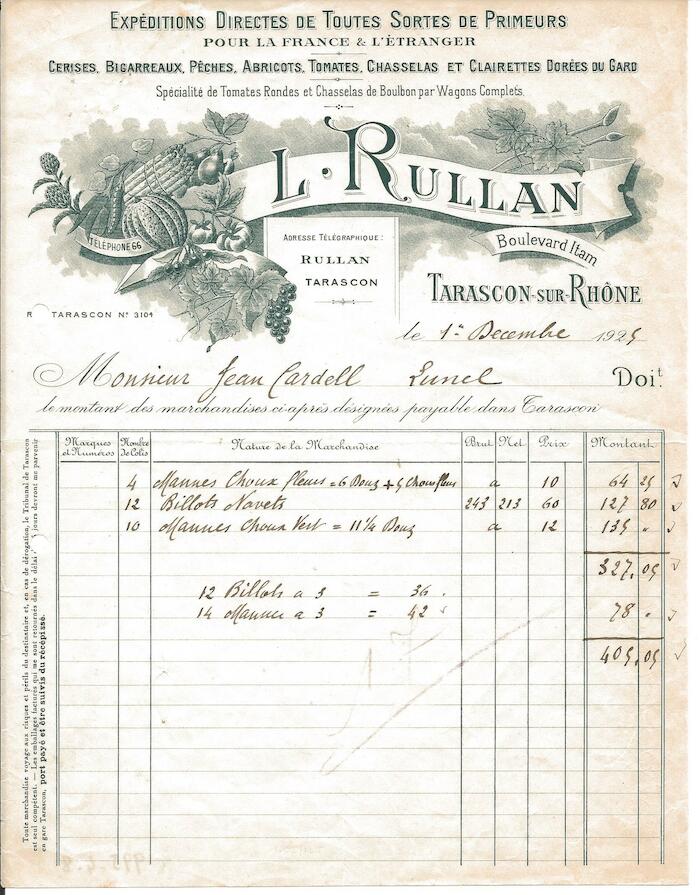 EXPÉDITIONS DIRECTES DE TOUTES SORTES DE PRIMEURS
POUR LA FRANCE & L'ÉTRANGER
CERISES, BIGARREAUX, PÊCHES, ABRICOTS, TOMATES, CHASSELAS ET CLAIRETTES DORÉES DU GARD
Spécialité de Tomates Rondes et Chasselas de Boulbon par Wagons Complets.
L. RULLAN
TÉLÉPHONE 66
ADRESSE TÉLÉGRAPHIQUE:
RULLAN
TARASCON
Boulevard Itam
TARASCON-SUR-RHÔNE
R TARASCON Nº 3104
le 1er Decembre 1925
Monsieur Jean Cardell Lunel Doit
le montant des marchandises ci-après désignées payable dans Tarascon
Marques et Numéros Nombre de Colis Nature de la Marchandise Brut Net Prix Montant
4 Mannes Choux fleurs = 6 Douz + 5 Choux fleur a 10 64 25
12 Billots Navets 243 213 60 127 80
10 Mannes Choux Vert = 11 1/4 Douz a 12 135 "
327,05
12 Billots a 3 = 36 .
14 Mannes a 3 = 42 78 "
405,05
Toute marchandise voyage aux risques et périls du destinataire et, en cas de dérogation, le Tribunal de Tarascon
est seul compétent. — Les emballages facturés qui me sont retournés dans le délai jours devront me parvenir
en gare Tarascon, port payé et être suivis du récépissé.